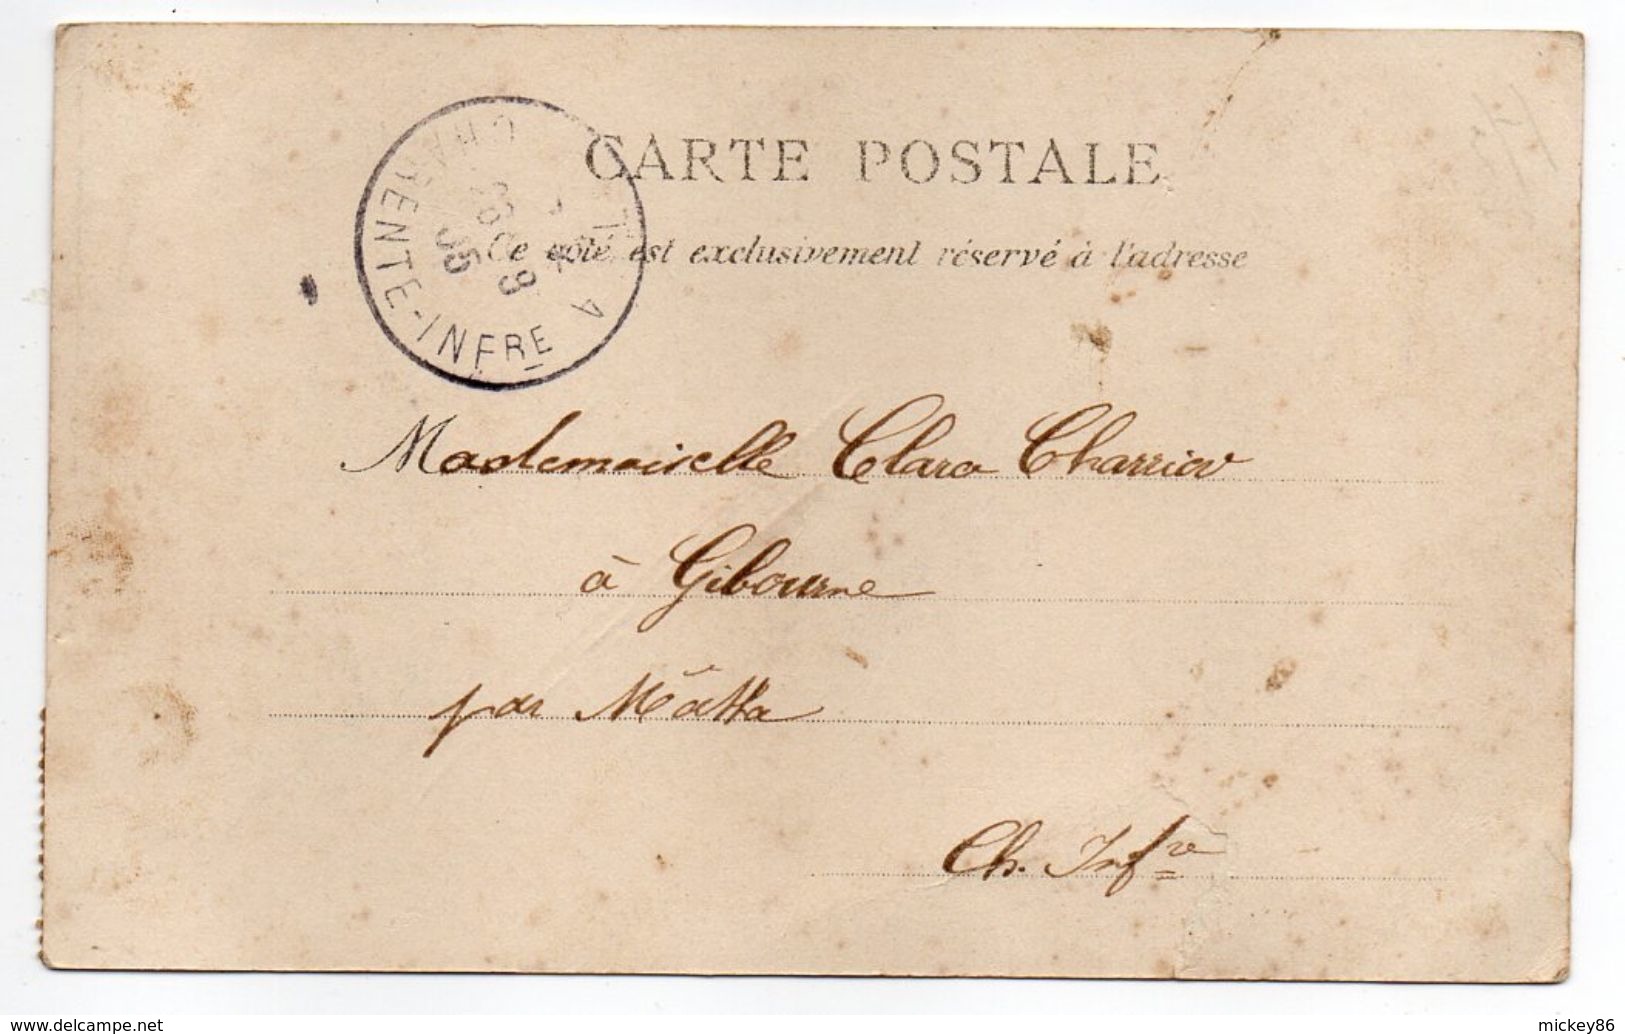 CARTE POSTALE
Ce côté est exclusivement réservé à l'adresse
CHARENTE-INFRE
Mademoiselle Clara Charriov
à Gibourne
par Mâtha
Ch. Infre
www.delcampe.net
mickey86